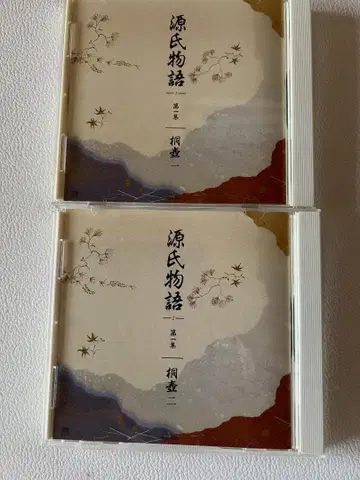 源氏物語
第一集
桐壺 一
源氏物語
2
第一集
桐壺 二